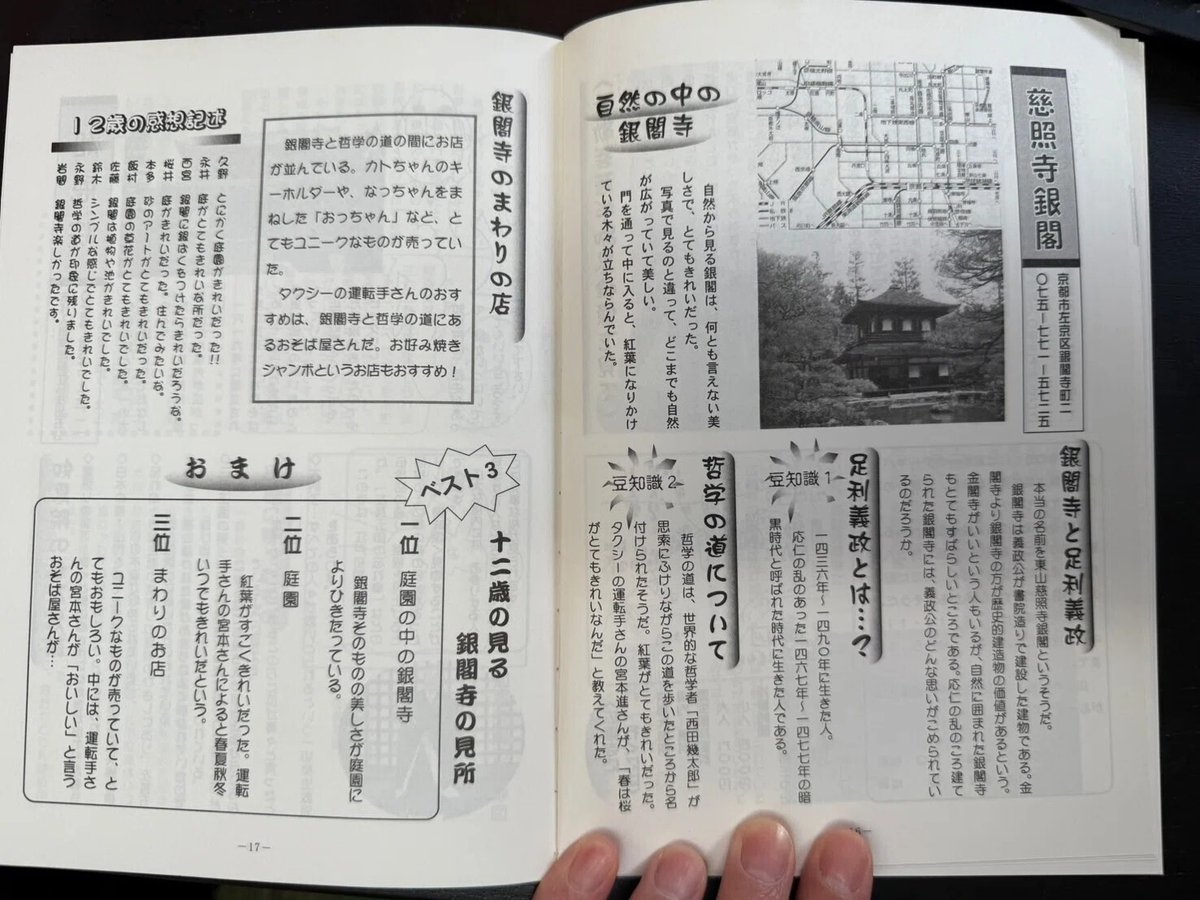 慈照寺銀閣
京都市左京区銀閣寺町二
〇七五ー七七一ー五七二五
自然の中の
銀閣寺
自然から見る銀閣は、何とも言えない美
しさで、とてもきれいだった。
写真で見るのと違って、どこまでも自然
が広がっていて美しい。
門を通って中に入ると、紅葉になりかけ
ている木々が立ちならんでいた。
銀閣寺と足利義政
本当の名前を東山慈照寺銀閣というそうだ。
銀閣寺は義政公が書院造りで建設した建物である。金
閣寺より銀閣寺の方が歴史的建造物の価値があるという。
金閣寺がいいという人もいるが、自然に囲まれた銀閣寺
もとてもすばらしいところである。応仁の乱のころ建て
られた銀閣寺には、義政公のどんな思いがこめられてい
るのだろうか。
足利義政とは…?
豆知識1
一四三六年～一四九〇年に生きた人。
応仁の乱のあった一四六七年～一四七七年の暗
黒時代と呼ばれた時代に生きた人である。
哲学の道について
豆知識2
哲学の道は、世界的な哲学者「西田幾太郎」が
思索にふけりながらこの道を歩いたところから名
付けられたそうだ。紅葉がとてもきれいだった。
タクシーの運転手さんの宮本進さんが、「春は桜
がとてもきれいなんだ」と教えてくれた。
銀閣寺のまわりの店
銀閣寺と哲学の道の間にお店
が並んでいる。カトちゃんのキ
ーホルダーや、なっちゃんをま
ねした「おっちゃん」など、と
てもユニークなものが売ってい
た。
タクシーの運転手さんのおす
すめは、銀閣寺と哲学の道にあ
るおそば屋さんだ。お好み焼き
ジャンボというお店もおすすめ！
12歳の感想記述
久野 とにかく庭園がきれいだった!!
永井 庭がとてもきれいな所だった。
西宮 銀閣に銀はくをつけたらきれいだろうな。
桜井 庭がきれいだった。住んでみたいな。
本多 砂のアートがとてもきれいだった。
飯村 庭園の草花がとてもきれいでした。
佐藤 銀閣は植物や池がきれいでした。
鈴木 シンプルな感じでとてもきれいでした。
永野 哲学の道が印象に残りました。
岩間 銀閣寺楽しかったです。
おまけ
ベスト3
十二歳の見る
銀閣寺の見所
一位 庭園の中の銀閣寺
銀閣寺そのものの美しさが庭園に
よりひきたっている。
二位 庭園
紅葉がすごくきれいだった。運転
手さんの宮本さんによると春夏秋冬
いつでもきれいだという。
三位 まわりのお店
ユニークなものが売っていて、と
てもおもしろい。中には、運転手さ
んの宮本さんが「おいしい」と言う
おそば屋さんが…
－17－